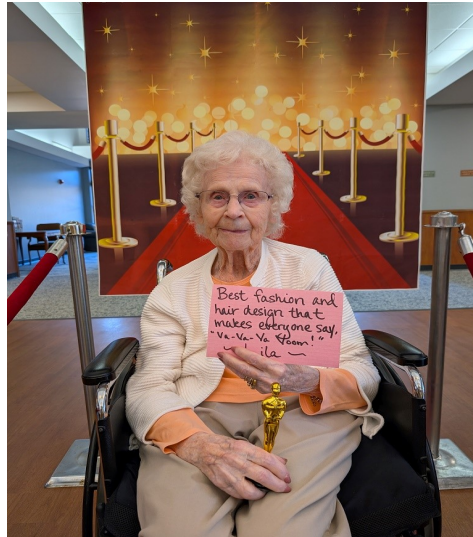 Best fashion and
hair design that
makes everyone say,
"Va-Va-Va Voom!"
~ ila ~